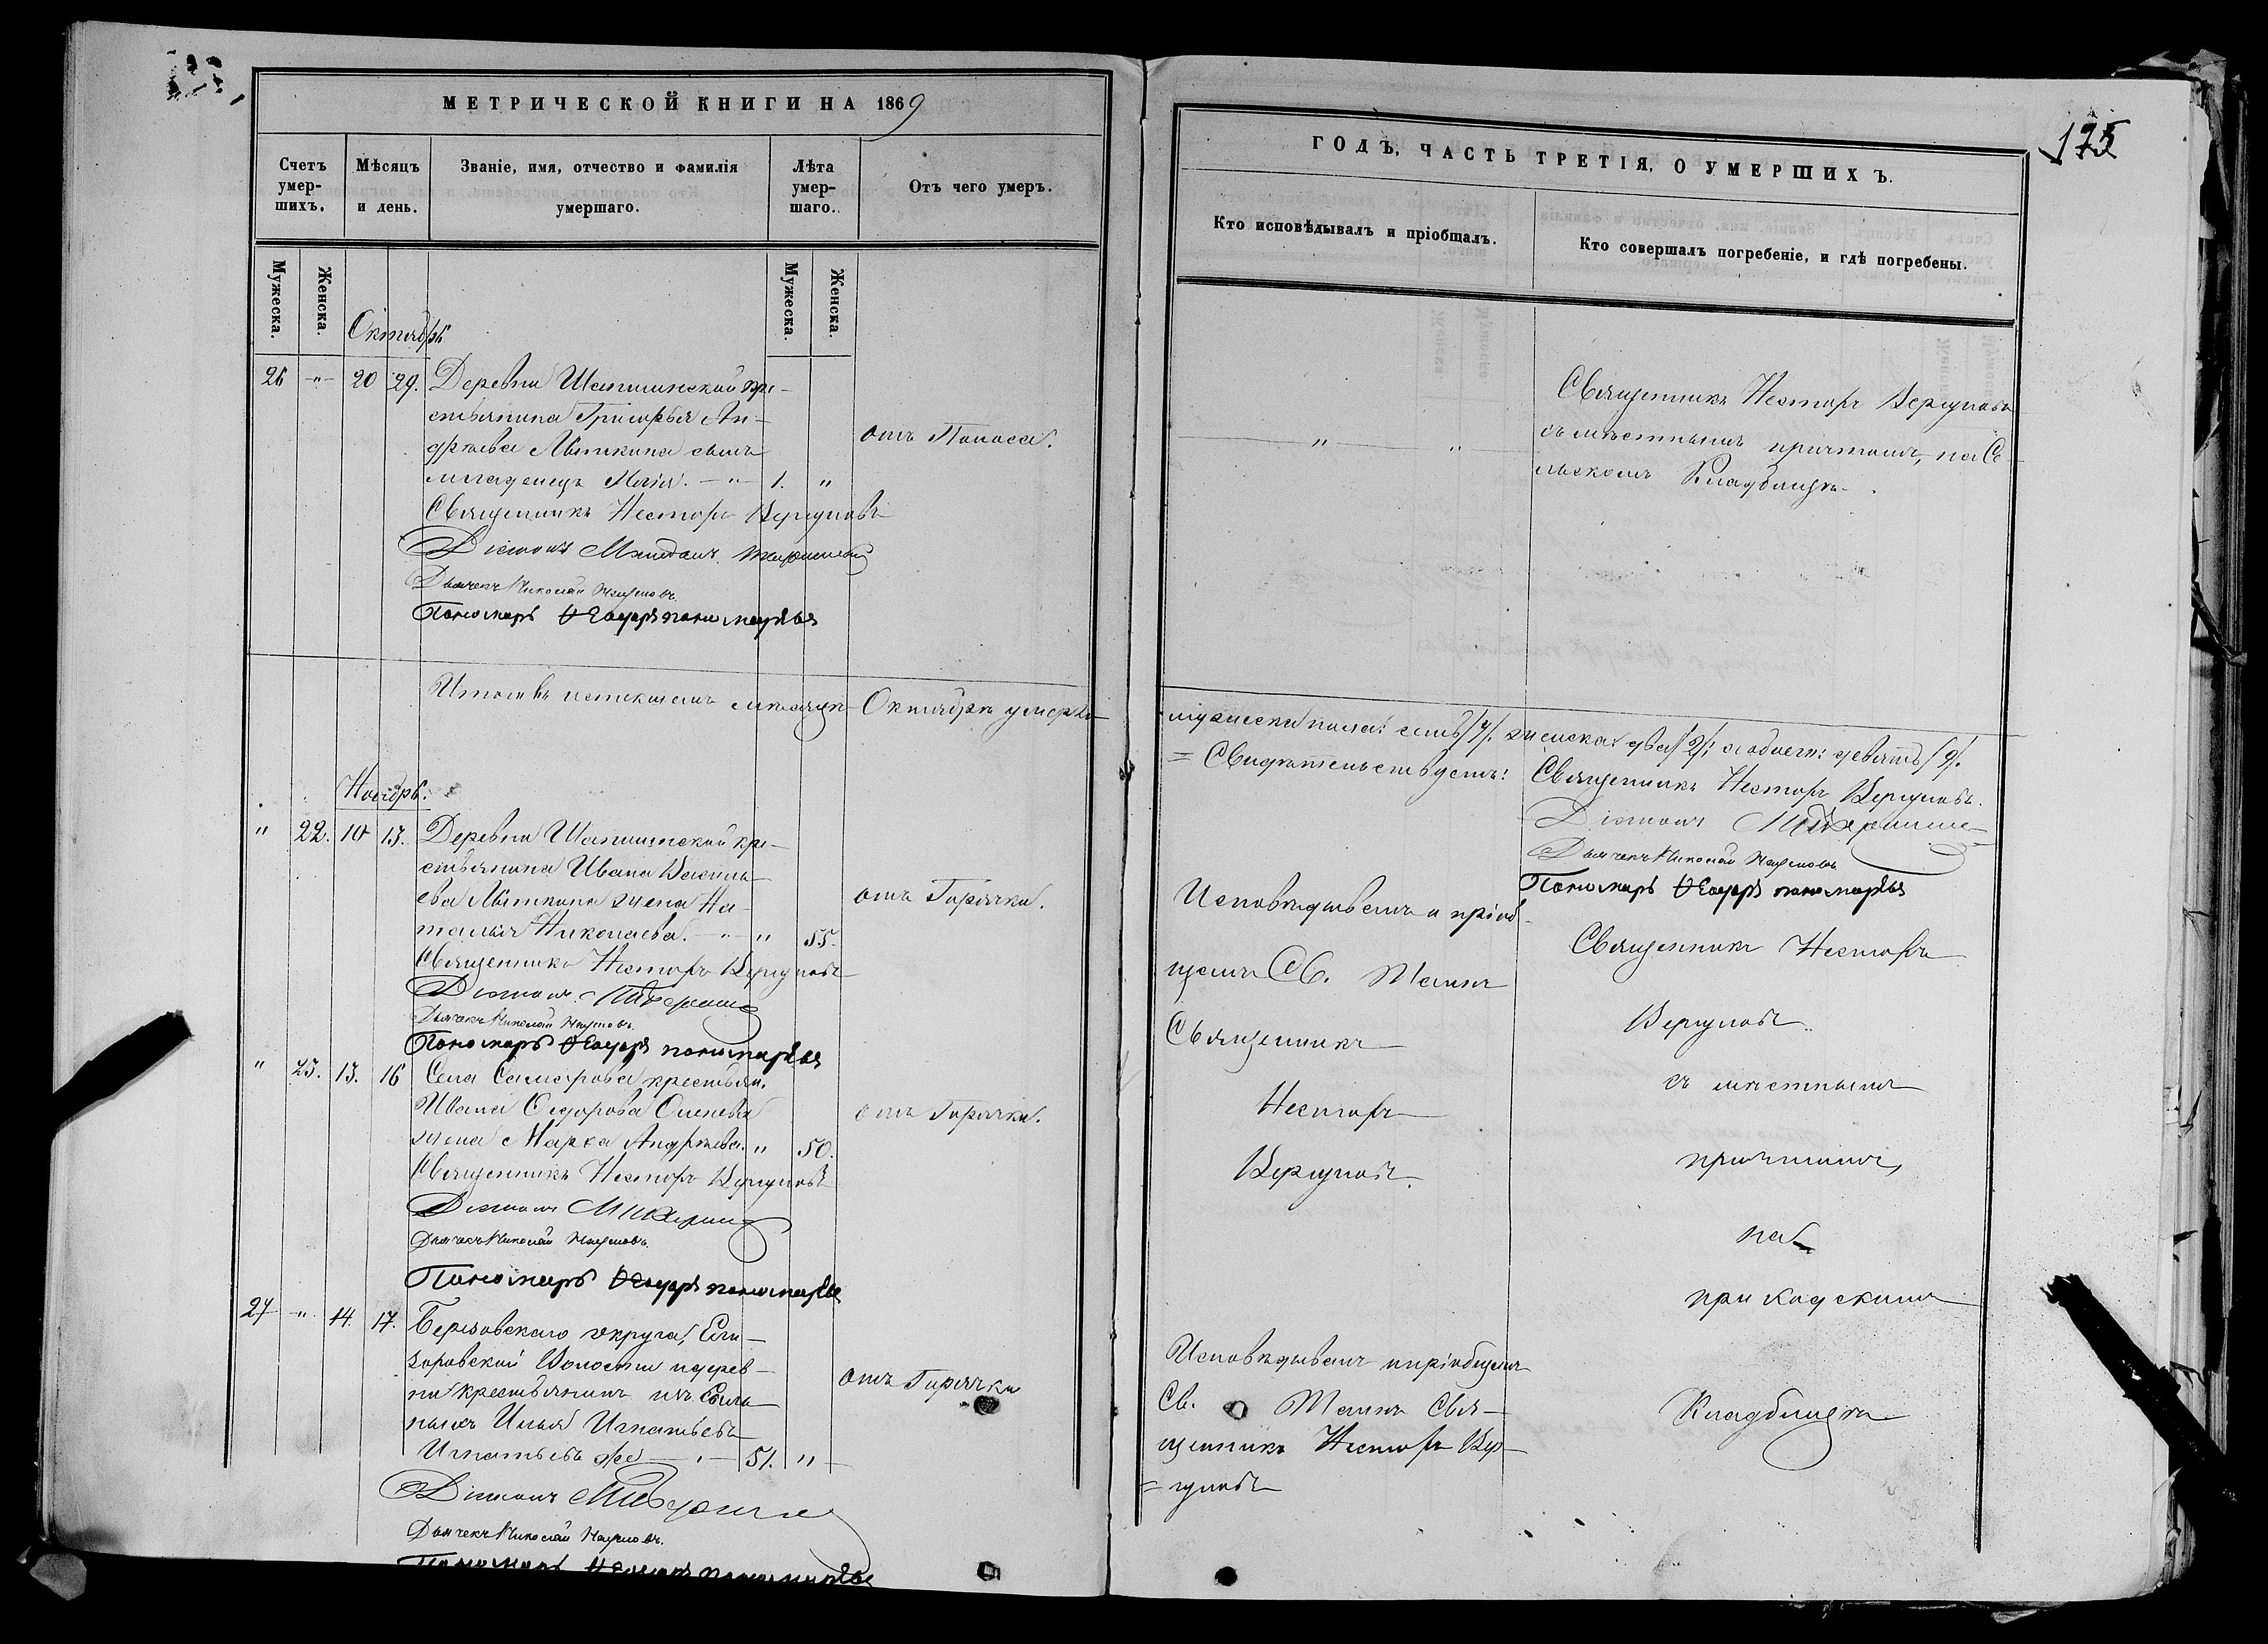 МЕТРИЧЕСКОЙ КНИГИ НА 1869
Счетъ умер-шихъ.
Мѣсяцъ и день.
Званіе, имя, отчество и фамилія умершаго.
Лѣта умер-шаго.
Отъ чего умеръ.
Мужеска.
Женска.
Мужеска.
Женска.
Октябрь
26 " 20 29. Деревни Шапшинской кре-
стьянина Григорья Ан-
дреева Лыткина сынъ
младенецъ Илія. — " — 1. "
отъ Поноса.
Священникъ Несторъ Вергуновъ
Діаконъ
Дьячекъ Николай Наумовъ.
Пономарь
Итого въ истекшемъ мѣсяцѣ Октябрѣ умерло
Ноябрь.
" 22. 10 13. Деревни Шапшинской кре-
стьянина Ивана Василь-
ева Лыткина жена На-
талья Николаева. — " " 55.
отъ Горячки.
Священникъ Несторъ Вергуновъ
Діаконъ
Дьячекъ Николай Наумовъ.
Пономарь
" 23. 13. 16 Села Самарова крестьян.
Ивана Сидорова
жена Марѳа Андреева. " 50.
отъ Горячки.
Священникъ Несторъ Вергуновъ
Діаконъ
Дьячекъ Николай Наумовъ.
Пономарь
27 " 14. 17. Березовскаго округа, Ели-
заровской Волости и дерев-
ни крестьянинъ изъ ссыль-
ныхъ Илья Игнатьевъ
Игнатьевъ же — " — 51. "
отъ Горячки
Діаконъ
Дьячекъ Николай Наумовъ.
Пономарь
175
ГОДЪ, ЧАСТЬ ТРЕТІЯ, О УМЕРШИХЪ.
Кто исповѣдывалъ и пріобщалъ.
Кто совершалъ погребеніе, и гдѣ погребены.
" "
Священникъ Несторъ Вергуновъ
съ мѣстнымъ причтомъ, на Се
льскомъ Кладбищѣ.
мужеска пола: семь /7/. женска: два /2/; а обоего: девять /9/.
= Свидѣтельствуемъ: Священникъ Несторъ Вергуновъ.
Діаконъ
Дьячекъ Николай Наумовъ
Пономарь
Исповѣдывалъ и пріоб-
щалъ Св. Таинъ
Священникъ
Несторъ
Вергуновъ.
Священникъ Несторъ
Вергуновъ
съ мѣстнымъ
причтомъ,
на
приходскомъ
Кладбищѣ
Исповѣдывалъ и пріобщалъ
Св. Таинъ Свя-
щенникъ Несторъ Вер-
= гуновъ